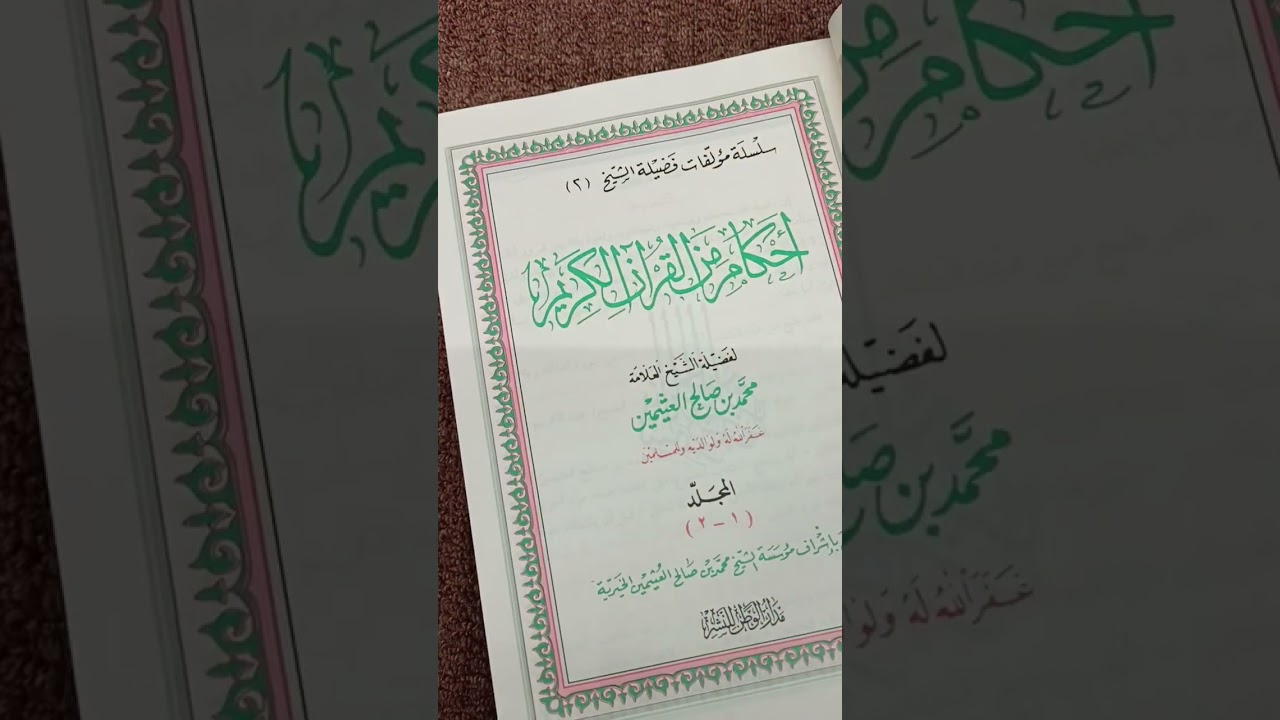 سلسلة مؤلفات فضيلة الشيخ (٢)
أحكام من القرآن الكريم
لفضيلة الشيخ العلامة
محمد بن صالح العثيمين
غفر الله له ولوالديه وللمسلمين
المجلد
(١-٢)
بإشراف مؤسسة الشيخ محمد بن صالح العثيمين الخيرية
مدار الوطن للنشر